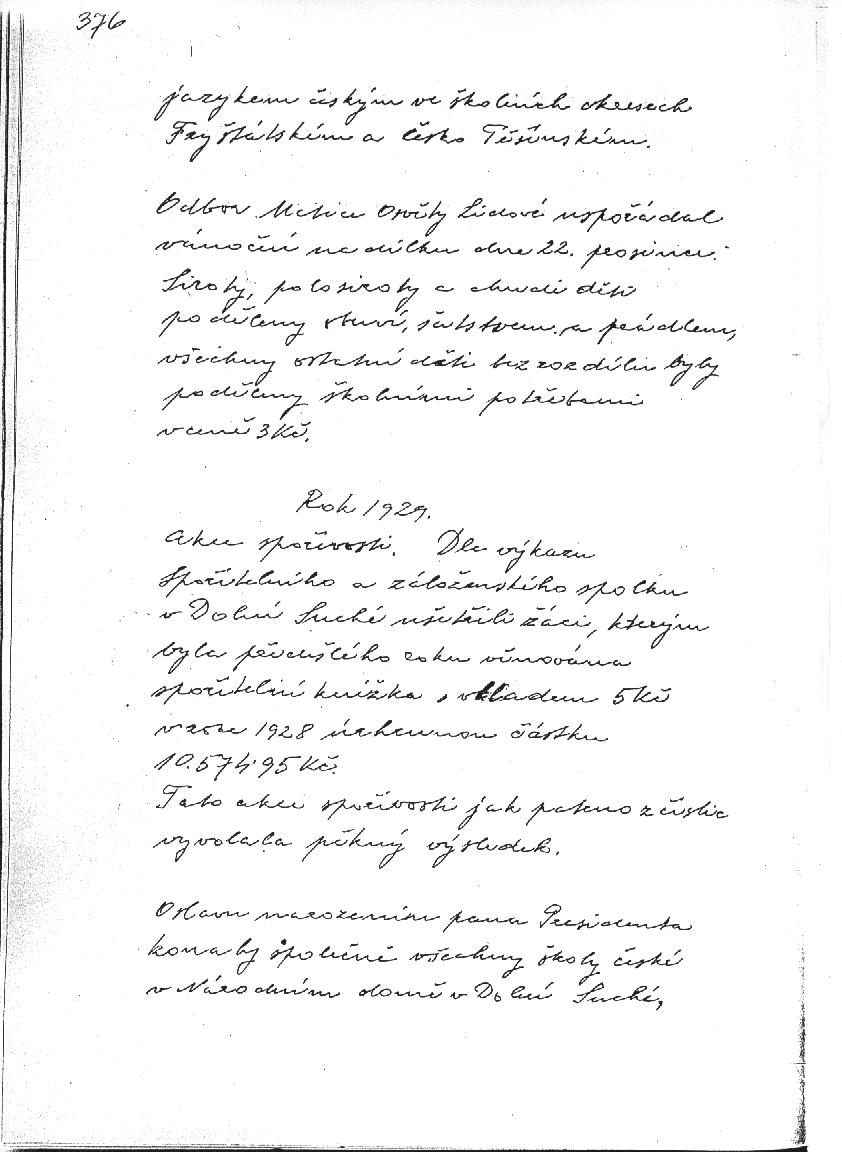 376
jazykem českým ve školních okresech
Fryštátském a česko Těšínském.
Odbor Matice Osvěty Lidové uspořádal
vánoční nadílku dne 22. prosince.
Siroty, polosiroty a chudé děti
poděleny obuví, šatstvem a prádlem,
všechny ostatní děti bez rozdílu byly
poděleny školními potřebami
v ceně 3 Kč.
Rok 1929.
Akce spořivosti. Dle výkazu
Spořitelního a záloženského spolku
v Dolní Suché ušetřili žáci, kterým
byla předešlého roku věnována
spořitelní knížka s vkladem 5 Kč
v roce 1928 úhrnnou částku
10.574.95 Kč.
Tato akce spořivosti jak patrno z číslic
vyvolala pěkný výsledek.
Oslavu narozenin pana Presidenta
konaly společně všechny školy české
v Národním domě v Dolní Suché,